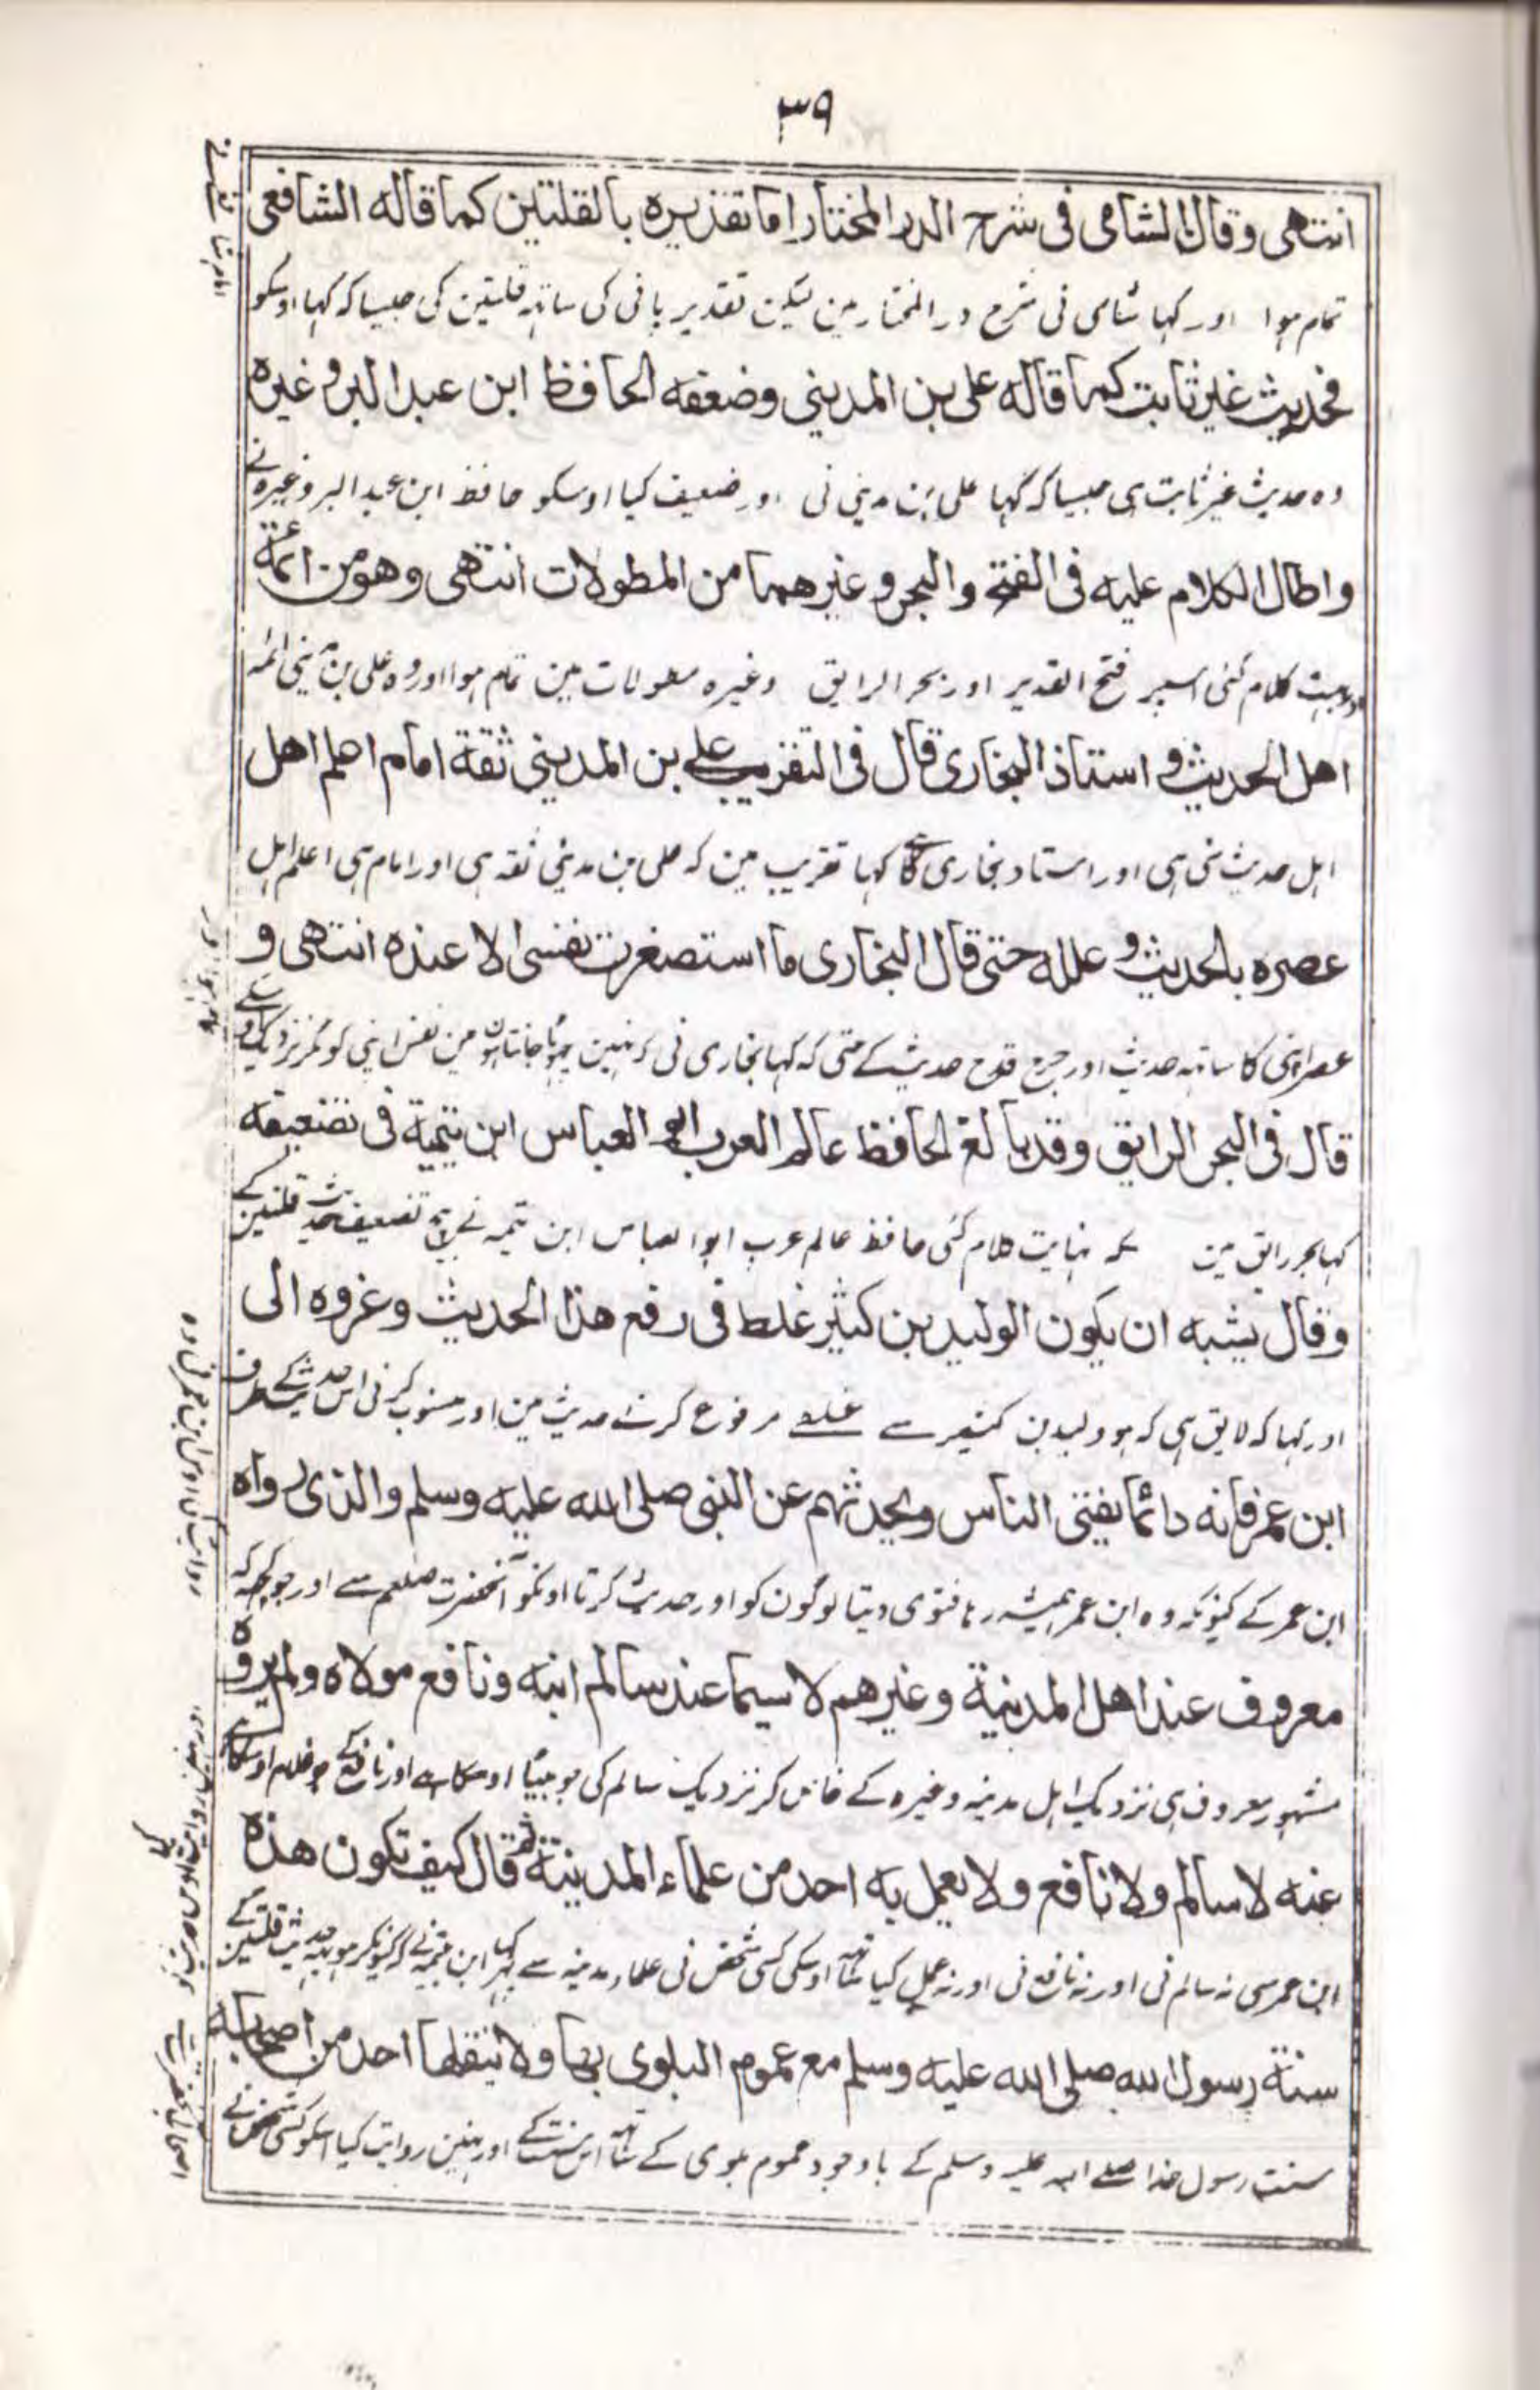 ٣٩
انتهى وقال الشامى فى شرح الدر المختار اما تقديره بالقلتين كما قاله الشافعى
تمام ہوا اور کہا شامی نی شرح در المختار مین لیکن تقدیر پانی کی ساتہہ قلتین کی جیسا کہ کہا اوسکو
فحديث غير ثابت كما قاله على بن المدينى وضعفه الحافظ ابن عبد البر وغيره
وہ حدیث غیر ثابت ہی جیسا کہ کہا علی بن مدینی نی اور ضعیف کیا اوسکو حافظ ابن عبد البر وغیرہ نے
واطال الكلام عليه فى الفتح والبحر وغيرهما من المطولات انتهى وهو من ائمة
اور بہت کلام کئی اسپر فتح القدیر اور بحر الرایق وغیرہ مطولات مین تمام ہوا اور وہ علی بن مدینی ائمہ
اهل الحديث و استاذ البخارى قال فى التقريب على بن المدينى ثقة امام اعلم اهل
اہل حدیث سی ہی اور استاد بخاری کا کہا تقریب مین کہ علی بن مدینی ثقہ ہی اور امام ہی اعلم اہل
عصره بالحديث و علله حتى قال البخارى ما استصغرت نفسى الا عنده انتهى و
عصر اپنی کا ساتہہ حدیث اور جرح قدح حدیث کے حتی کہ کہا بخاری نی کہ نہین چہوٹا جانتا ہون مین نفس اپنی کو مگر نزدیک
قال فى البحر الرايق وقد بالغ الحافظ عالم العرب ابو العباس ابن تيمية فى تضعيفه
کہا بحر رایق مین کہ نہایت کلام کئی حافظ عالم عرب ابو العباس ابن تیمیہ نے بیچ تضعیف حدیث قلتین کے
وقال يشبه ان يكون الوليد بن كثير غلط فى رفع هذا الحديث وعزوه الى
اور کہا کہ لایق ہی کہ ہو ولید بن کثیر سے غلطے مرفوع کرنے حدیث مین اور منسوب کرنی اس حدیث کے طرف
ابن عمر فانه دائما يفتى الناس ويحدثهم عن النبى صلى الله عليه وسلم والذى رواه
ابن عمر کے کیونکہ وہ ابن عمر ہمیشہ رہا فتوی دیتا لوگون کو اور حدیث کرتا اونکو آنحضرت صلعم سے اور جو کچھ کہ
معروف عند اهل المدينة وغيرهم لا سيما عند سالم ابنه ونافع مولاه ولم يروه
مشہور معروف ہی نزدیک اہل مدینہ وغیرہ کے خاص کر نزدیک سالم کی جو بیٹا اوسکا ہے اور نافع کے جو غلام اوسکا ہے
عنه لا سالم ولا نافع ولا يعمل به احد من علماء المدينة ثم قال كيف تكون هذه
ابن عمر سی نہ سالم نی اور نہ نافع نی اور نہ عمل کیا ساتہہ اوسکی کسی شخص نی علماء مدینہ سے پہر کہا ابن تیمیہ نے کہ کیونکر ہو یہہ حدیث قلتین کے
سنة رسول الله صلى الله عليه وسلم مع عموم البلوى بها ولا ينقلها احد من اصحابه
سنت رسول خدا صلے اللہ علیہ وسلم کے باوجود عموم بلوی کے ساتہہ اس سنت کے اور نہین روایت کیا اسکو کسی شخص نے